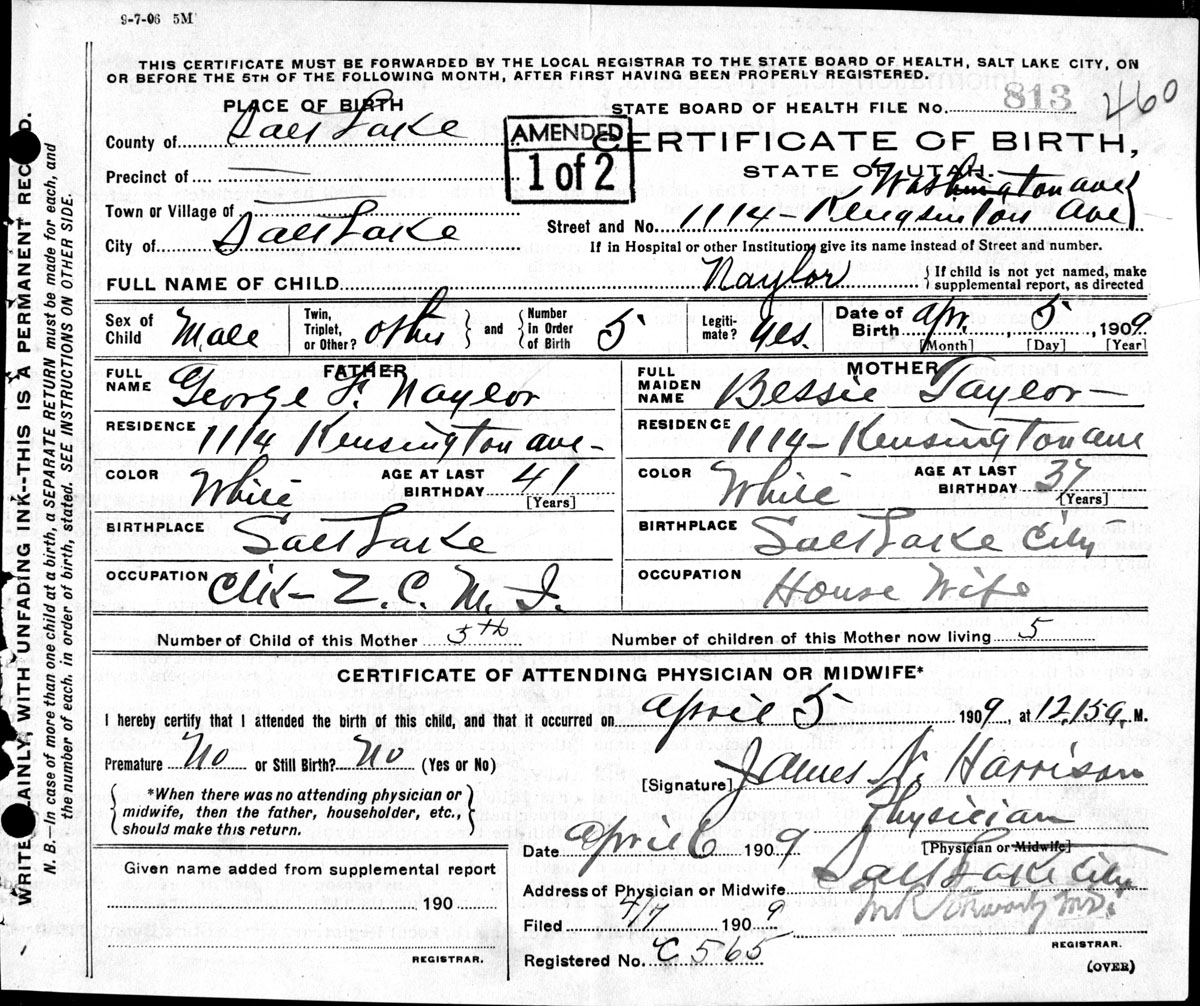 9-7-06 5M
THIS CERTIFICATE MUST BE FORWARDED BY THE LOCAL REGISTRAR TO THE STATE BOARD OF HEALTH, SALT LAKE CITY, ON
OR BEFORE THE 5TH OF THE FOLLOWING MONTH, AFTER FIRST HAVING BEEN PROPERLY REGISTERED.
PLACE OF BIRTH
STATE BOARD OF HEALTH FILE No. 813 460
County of Salt Lake
AMENDED
1 of 2
CERTIFICATE OF BIRTH,
STATE OF UTAH.
Precinct of —
Town or Village of —
Washington ave
Street and No. 1114 - Kengsinton Ave
City of Salt Lake
If in Hospital or other Institution, give its name instead of Street and number.
FULL NAME OF CHILD Naylor
{If child is not yet named, make
supplemental report, as directed
Sex of Child Male
Twin, Triplet, or Other? other } and { Number in Order of Birth 5
Legitimate? yes.
Date of Birth Apr. 5, 1909
[Month] [Day] [Year]
FATHER
FULL NAME George F. Naylor
RESIDENCE 1114 Kensington ave -
COLOR White
AGE AT LAST BIRTHDAY 41
[Years]
BIRTHPLACE Salt Lake
OCCUPATION Clk - Z. C. M. I.
MOTHER
FULL MAIDEN NAME Bessie Taylor -
RESIDENCE 1114 - Kensington ave
COLOR White
AGE AT LAST BIRTHDAY 37
[Years]
BIRTHPLACE Salt Lake City
OCCUPATION House Wife
Number of Child of this Mother 5th
Number of children of this Mother now living 5
CERTIFICATE OF ATTENDING PHYSICIAN OR MIDWIFE*
I hereby certify that I attended the birth of this child, and that it occurred on April 5 1909, at 12,15 a. M.
Premature No or Still Birth? No (Yes or No)
[Signature] James N. Harrison
*When there was no attending physician or
midwife, then the father, householder, etc.,
should make this return.
Physician
Date April 6 1909
[Physician or Midwife]
Address of Physician or Midwife Salt Lake City
Filed 4/7 1909
M.D.
REGISTRAR.
Registered No. C 565
(OVER)
Given name added from supplemental report
190
REGISTRAR.
WRITE PLAINLY, WITH UNFADING INK--THIS IS A PERMANENT RECORD.
N. B.—In case of more than one child at a birth, a SEPARATE RETURN must be made for each, and
the number of each, in order of birth, stated. SEE INSTRUCTIONS ON OTHER SIDE.